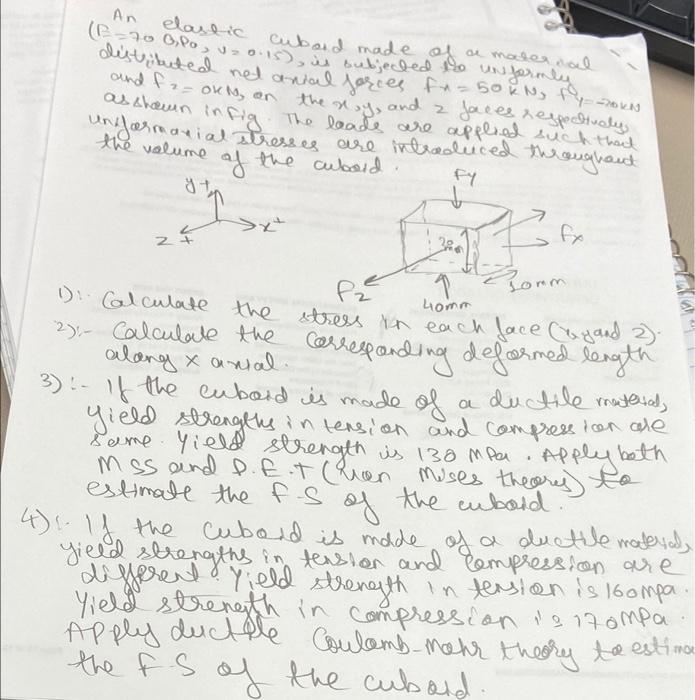 An elastic cuboid made of a material
(E=70 GPa, ν=0.15), is subjected to uniformly
distributed net axial forces fx = 50 kN, fy=-20kN
and fz = 0kN, on the x, y, and z faces respectively
as shown in fig. The loads are applied such that
uniform axial stresses are introduced throughout
the volume of the cuboid.
y+
x+
z+
Fy
fx
Fz
20mm
10mm
40mm
1):- Calculate the stress in each face (x, y and z).
2):- Calculate the corresponding deformed length
along x axial.
3):- If the cuboid is made of a ductile material,
yield strengths in tension and compression are
same. Yield strength is 130 MPa. Apply both
MSS and D.E.T (Von Mises theory) to
estimate the F.S of the cuboid.
4):- If the cuboid is made of a ductile material,
yield strengths in tension and compression are
different. Yield strength in tension is 160mpa.
Yield strength in compression is 170MPa
Apply ductile Coulomb-Mohr theory to estima
the F.S of the cuboid.